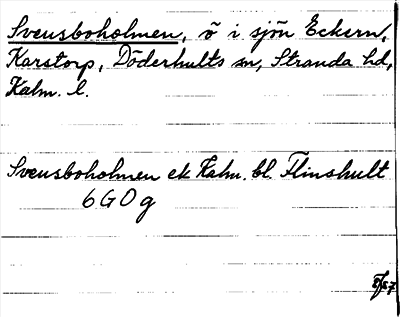 Svensboholmen, ö i sjön Eckern,
Karstorp, Döderhults sn, Stranda hd,
Kalm. l.
Svensboholmen ek Kalm. bl. Flinshult
6G0g